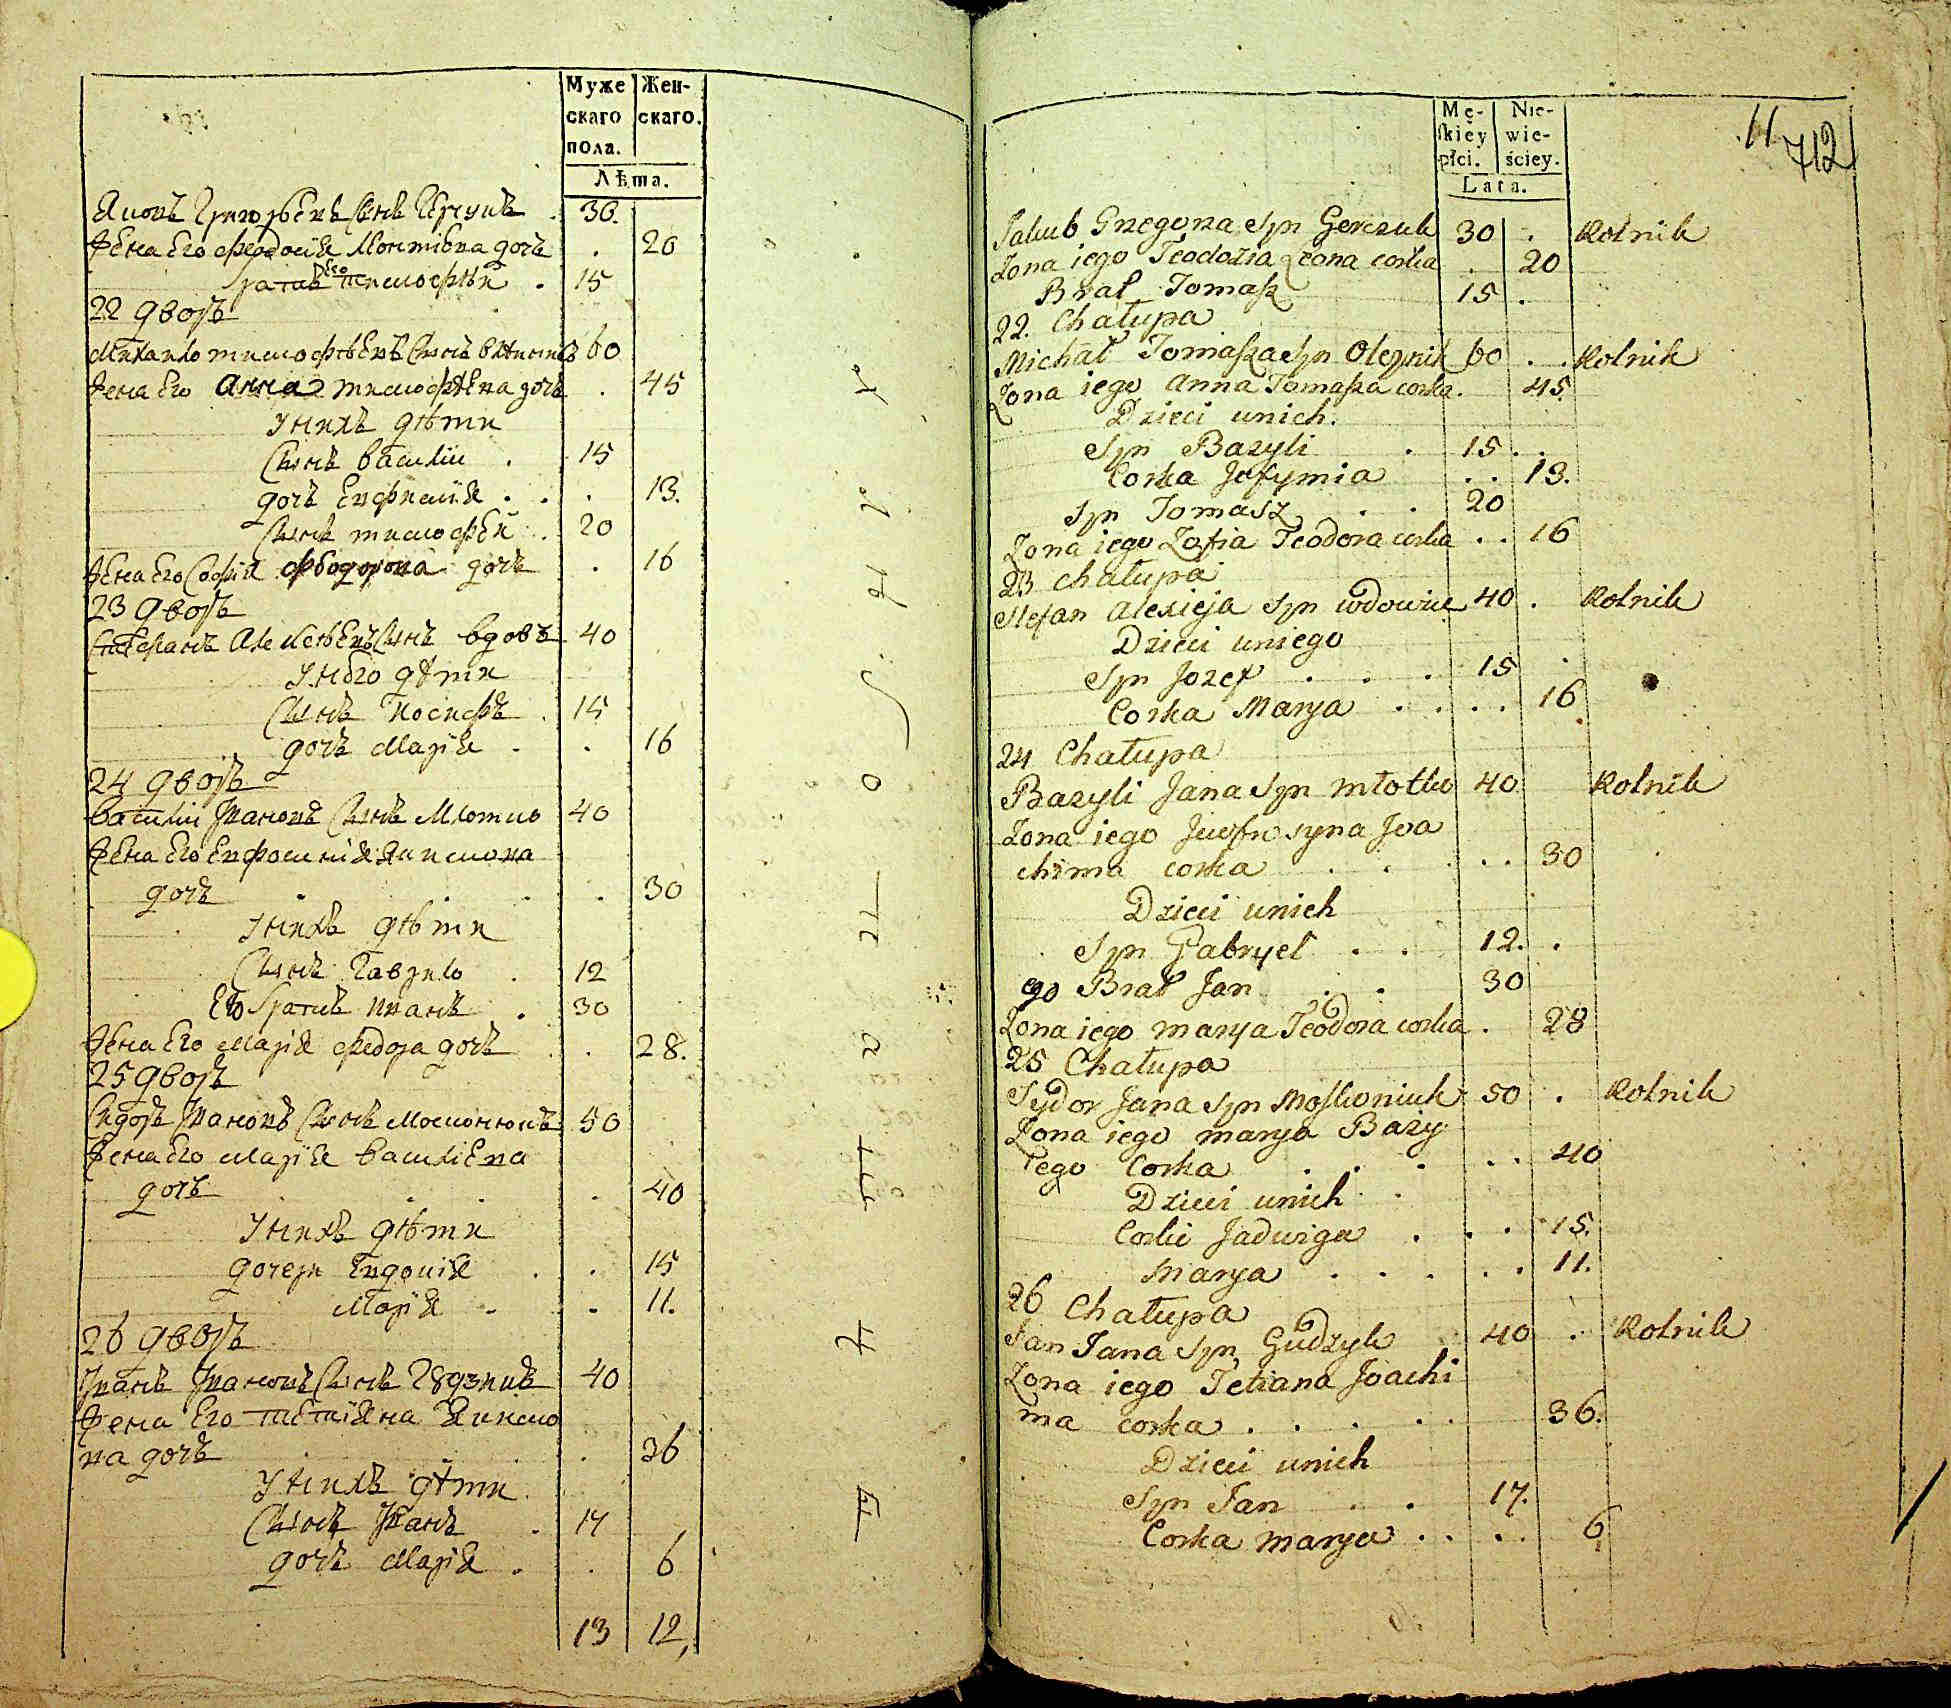 Муже
скаго
пола.
Жен-
скаго.
Лѣта.
Яковъ Григорьевъ Сынъ Герчукъ . 30.
Жена Его Феодосия Леонтіева дочь . 20
братъ Его Тимофѣй . 15
22 дворъ
Михаило тимофѣевъ Сынъ 60
Жена Его Анна тимофѣева дочь . 45
У нихъ дѣти
Сынъ василии . 15
дочь Евфимія . . . 13.
Сынъ тимофей . 20
Жена Его Софія феодорова дочь . 16
23 дворъ
Стефанъ Алексѣевъ Сынъ вдовъ 40
У него дѣти
Сынъ Иосифъ . 15
дочь Марія . . 16
24 дворъ
василии Ивановъ Сынъ Млотко 40
Жена Его Евфосинія Якимова
дочь . . . 30
У нихъ дѣти
Сынъ Гаврило . 12
Его братъ иванъ . 30
Жена Его Марія федора дочь . . 28.
25 дворъ
Сидоръ Ивановъ Сынъ Москонюкъ 50
Жена Его Марія василіева
дочь . . . . 40
У нихъ дѣти
дочери Евдокія . . 15
Марія . . 11.
26 дворъ
Иванъ Ивановъ Сынъ Гудзикъ 40
Жена Его тетіяна Якимо
ва дочь . . 36
У нихъ дѣти
Сынъ Иванъ . 17
дочь Марія . . 6
13 12,
11
712
Mę-
skiey
płci.
Nie-
wie-
ściey.
Lata.
Jakub Grzegorza Syn Gerczuk 30 . Rolnik
Zona iego Teodozia Leona corka . 20
Brat Tomasz 15 .
22. Chałupa
Michał Tomasza Syn Oleynik 60 . . Rolnik
Zona iego Anna Tomasza corka . 45.
Dzieci unich.
Syn Bazyli . 15 . .
Corka Jefymia . . 13.
Syn Tomasz . . 20
Zona iego Zofia Teodora corka . . 16
23 chałupa
Stefan Alexieja Syn wdowiec 40 . Rolnik
Dzieci uniego
Syn Jozef . . . 15 .
Corka Marya . . . . 16
24 Chałupa
Bazyli Jana Syn Młotko 40 Rolnik
Zona iego Jewfrosyna Joa
chima corka . . . . 30
Dzieci unich
Syn Gabryel . . 12. .
ego Brat Jan . . 30
Zona iego Marya Teodora corka . 28
25 Chałupa
Sydor Jana Syn Moskoniuk 50 . Rolnik
Zona iego Marya Bazy
lego Corka . . . . . 40
Dzieci unich .
Corki Jadwiga . . . 15.
Marya . . . . . 11.
26 Chałupa
Jan Jana Syn Gudzyk 40 . Rolnik
Zona iego Tetiana Joachi
ma corka . . . . 36.
Dzieci unich
Syn Jan . . 17.
Corka Marya . . . . 6